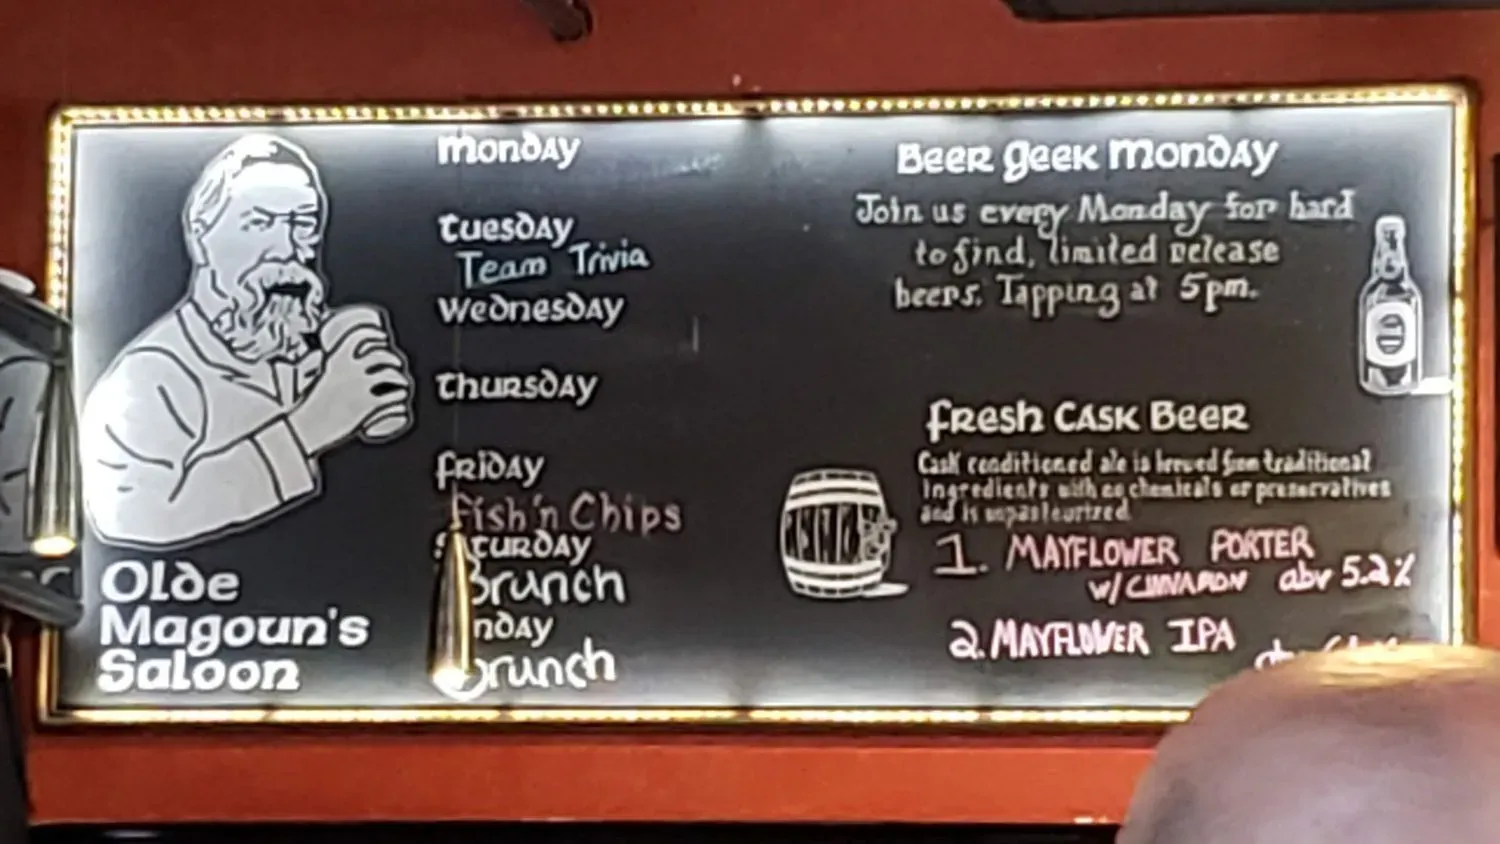 Monday
Tuesday
Team Trivia
Wednesday
Thursday
Friday
Fish 'n Chips
Saturday
Brunch
nday
Brunch
Olde
Magoun's
Saloon
Beer Geek Monday
Join us every Monday for hard
to find, limited release
beers. Tapping at 5pm.
Fresh Cask Beer
Cask conditioned ale is brewed from traditional
ingredients with no chemicals or preservatives
and is unpasteurized.
1. MAYFLOWER PORTER
w/ CINNAMON abv 5.2%
2. MAYFLOWER IPA